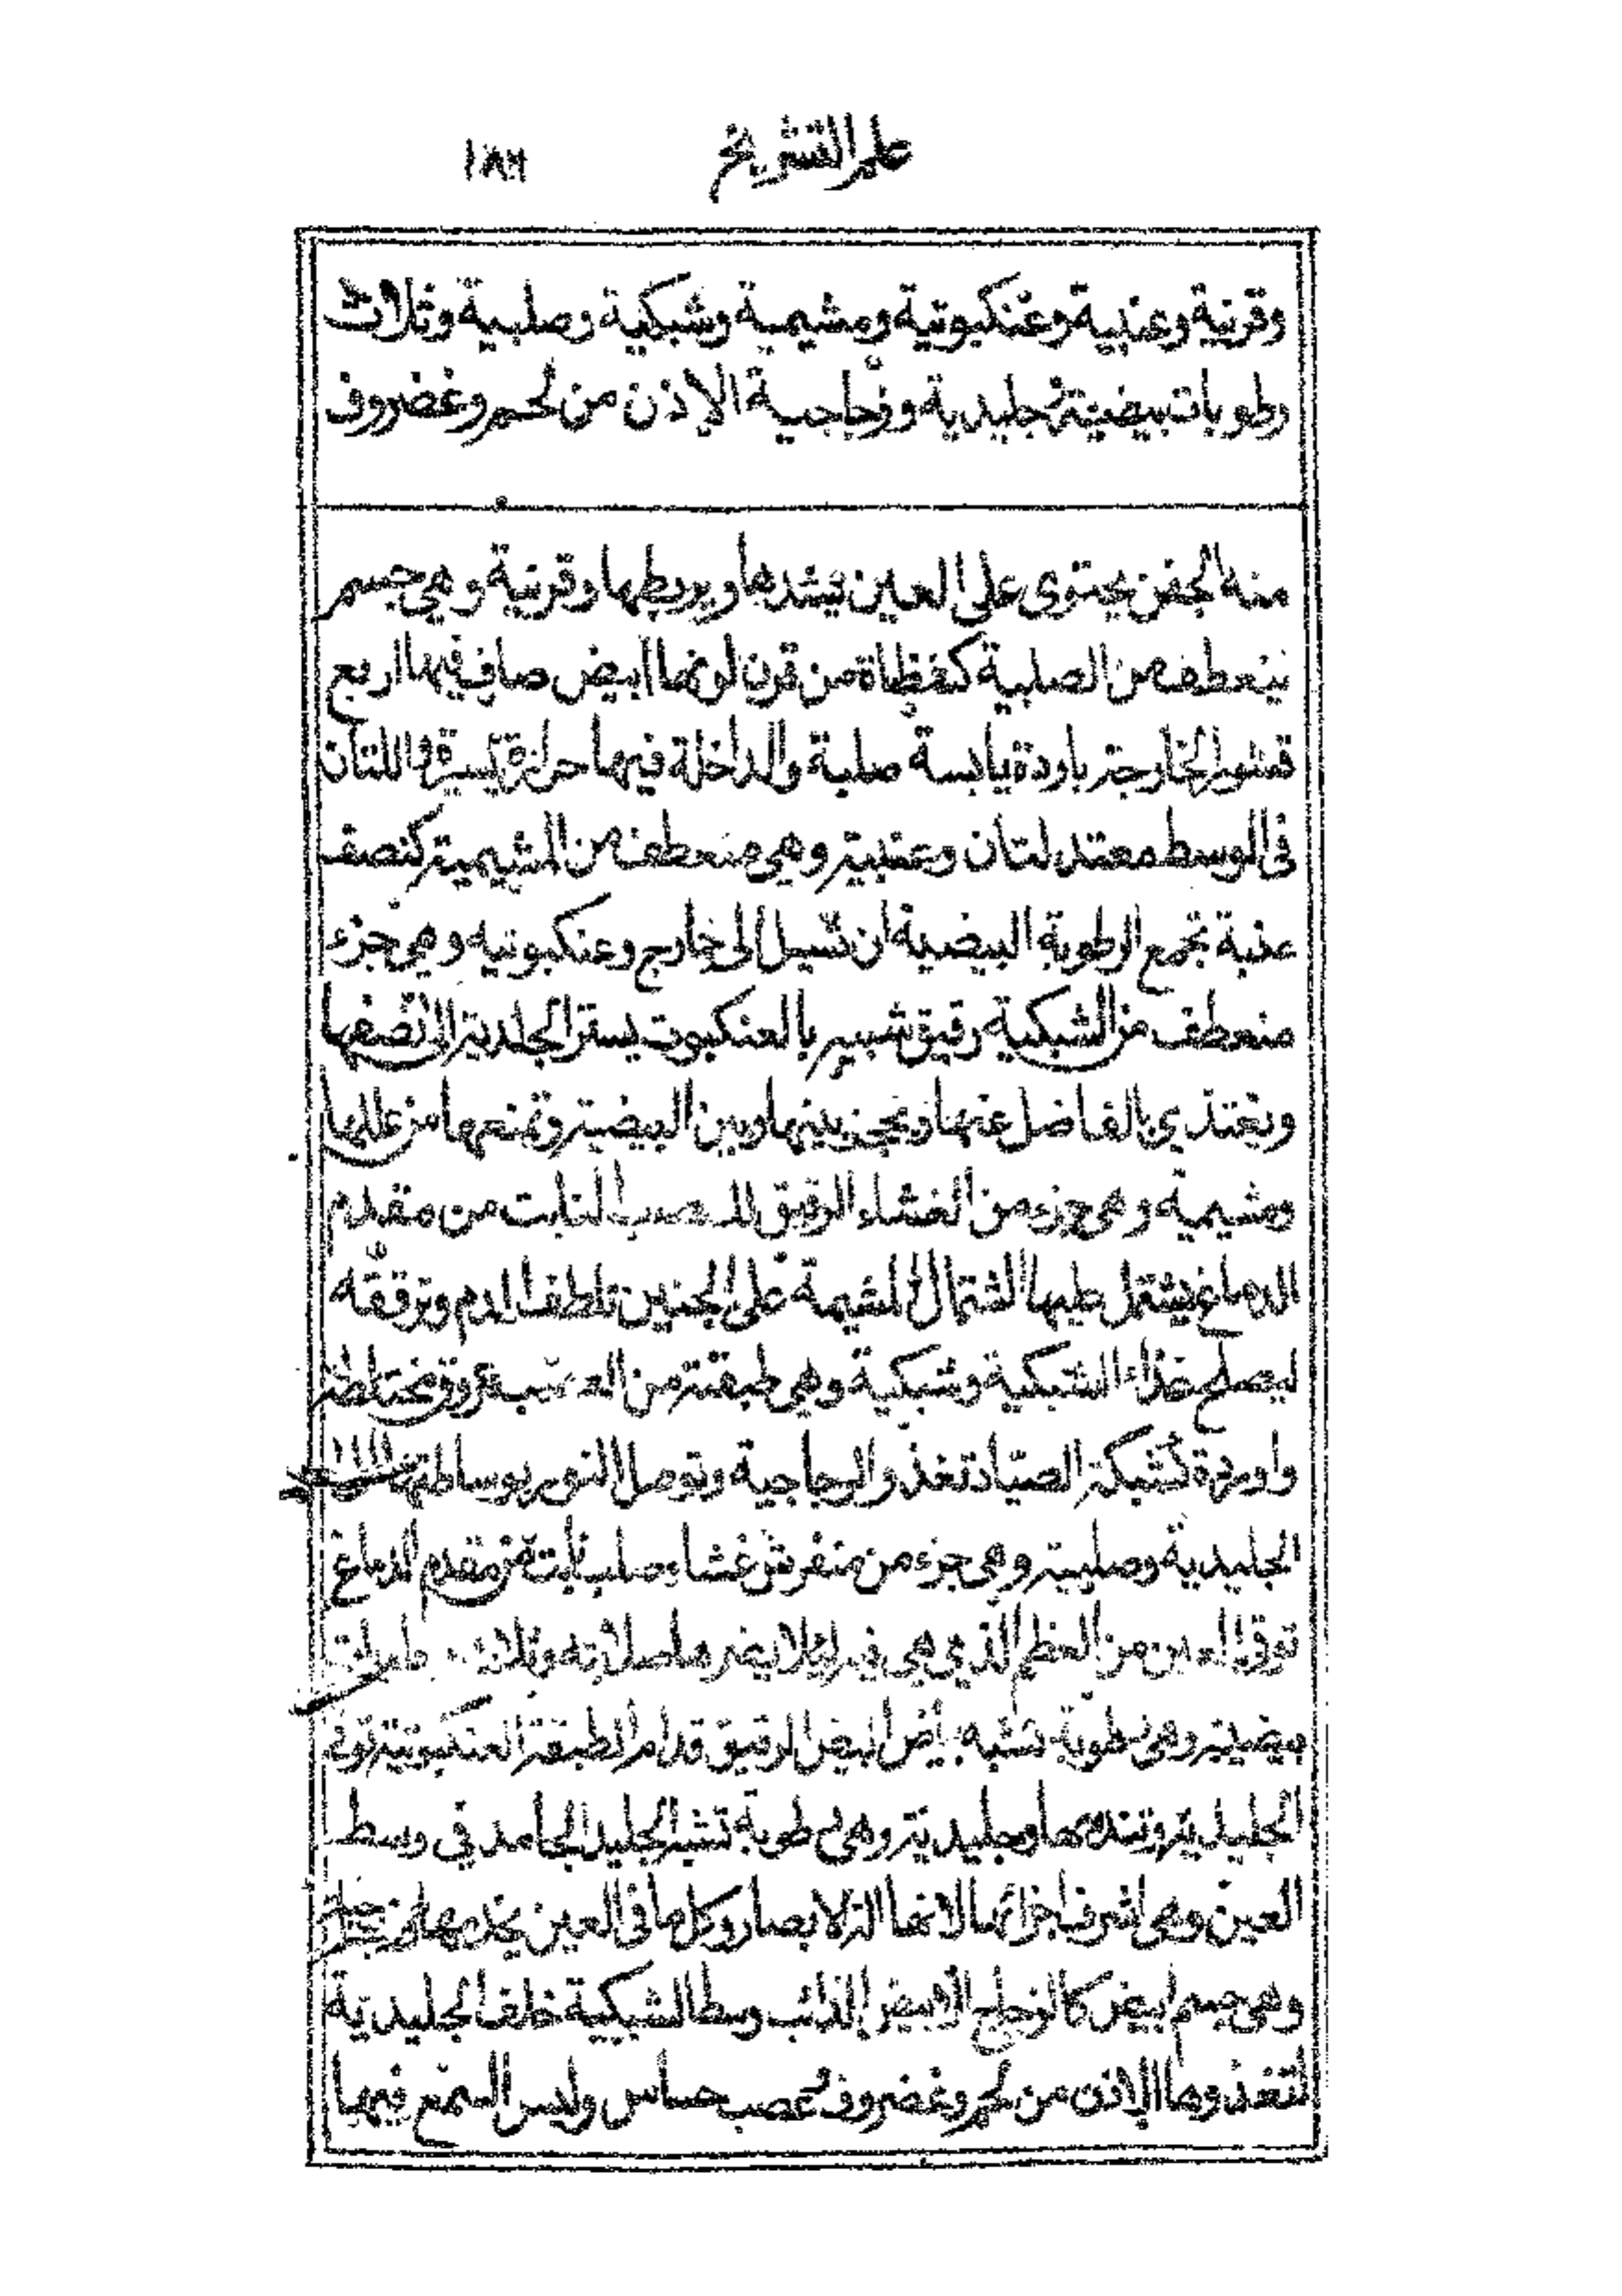 علم التشريح ١٨٦
وقرنية وعنبية وعنكبوتية ومشيمية وشبكية وصلبية وثلاث
رطوبات بيضية جليدية وزجاجية الاذن من لحم وغضروف
منه الجفن يحتوى على العين يشدها ويربطها وقرنية وهي جسم
ينعطف من الصلبية من قرن لونها ابيض صاف فيها اربع
قشور الخارجة باردة يابسة صلبة والداخلة فيها حرارة يسيرة واللتان
فى الوسط معتدلتان وعنبية وهي منعطف من المشيمية كنصف
عنبة تجمع الرطوبة البيضية ان تسيل الى خارج وعنكبوتيه وهي جزء
منعطف من الشبكية رقيق شبيه بالعنكبوت يستر الجلدية الى نصفها
ويغتذي بالفاضل عنها ويحجز بينها وبين البيضية وتمنعها من عللها
ومشيمية وهى جزء من الغشاء الرقيق النابت من مقدم
الدماغ يشتمل عليها اشتمال المشيمة على الجنين تلطف الدم وترققه
ليصلح غذاء الشبكية وشبكية وهي طبقة من العصب عروق مختلطة
واوردة كشبكة الصياد تغذو الزجاجية وتوصل النور بوساطتها
الجليدية وصلبية وهى جزء من منفرش غشاء صلب نابتة من مقدم الدماغ
توقى العين من العظم الذي هي فيه لئلا يضرها صلابته وثلاث رطوبات
بيضية وهى رطوبة تشبه بياض البيض الرقيق قدام الطبقة العنكبوتية توقى
الجليدية وتنديها وجليدية وهى رطوبة تشبه الجليد الجامد في وسط
العين وهى اشرف اجزائها لانها الة الابصار وكل ما فى العين يخدمها
وهى جسم ابيض كالزجاج الابيض الذائب وسط الشبكية خلف الجليدية
لتغذوها الاذن من لحم وغضروف عصب حساس وليس السمع فيها